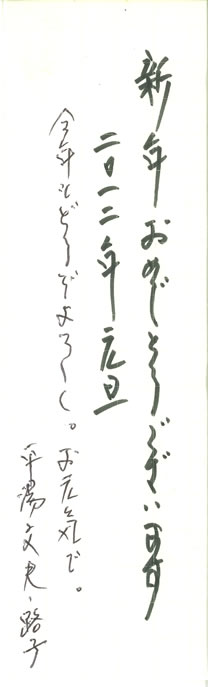 新年おめでとうございます
二〇一二年元旦
今年もどうぞよろしく。お元気で。
平湯文夫、路子